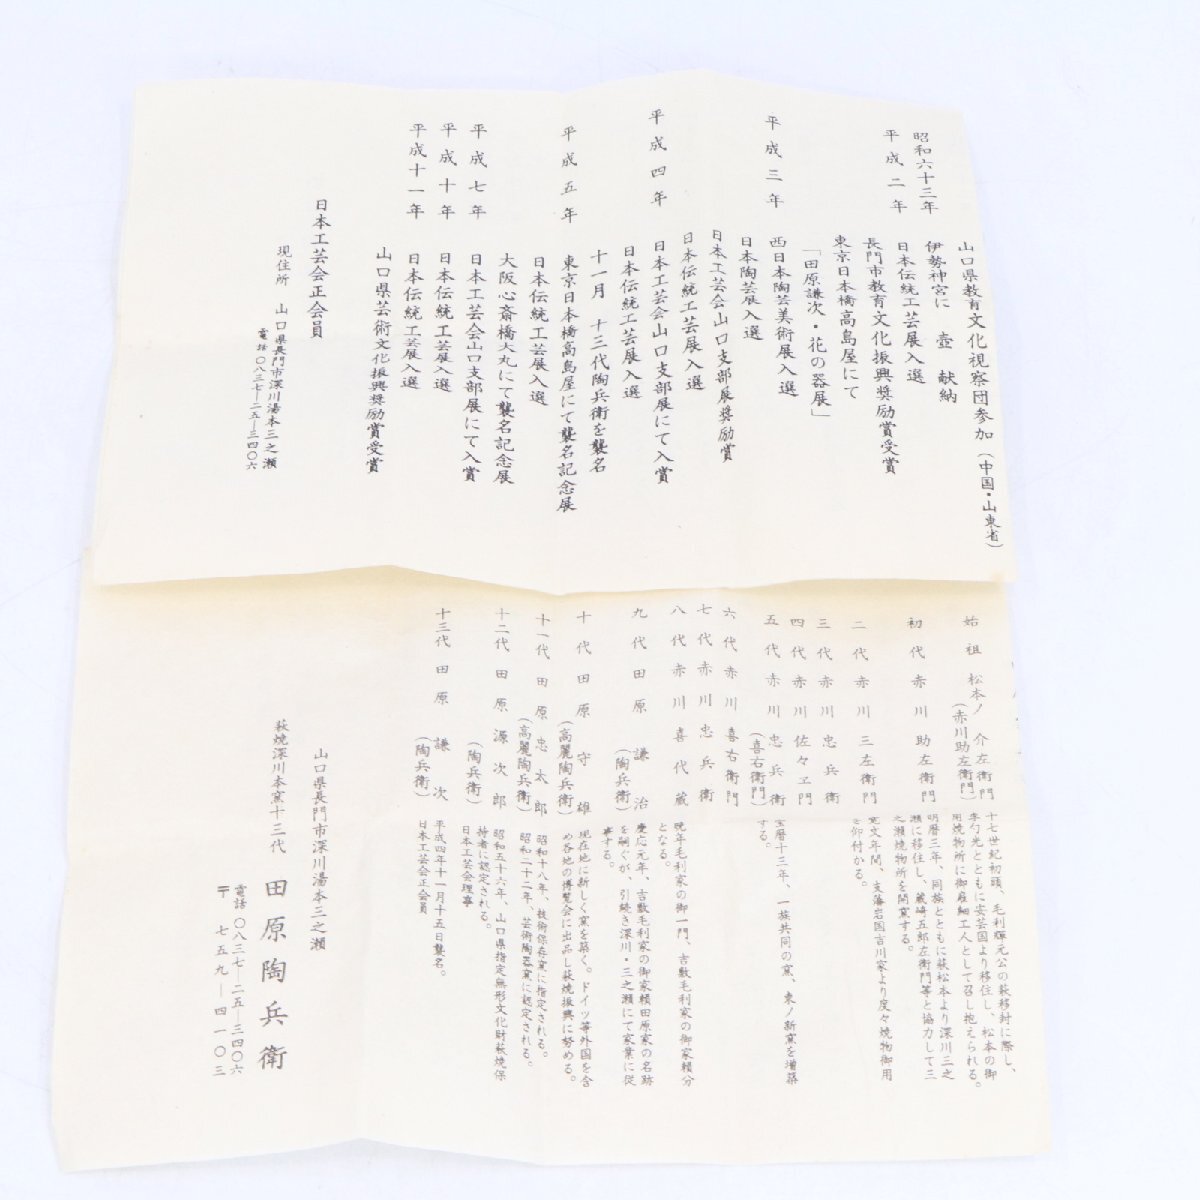 山口県教育文化視察団参加（中国・山東省）
昭和六十三年 伊勢神宮に 壺 献納
平成二年 日本伝統工芸展入選
長門市教育文化振興奨励賞受賞
東京日本橋高島屋にて
「田原謙次・花の器展」
平成三年 西日本陶芸美術展入選
日本陶芸展入選
日本工芸会山口支部展奨励賞
日本伝統工芸展入選
平成四年 日本工芸会山口支部展にて入賞
日本伝統工芸展入選
十一月 十三代陶兵衛を襲名
平成五年 東京日本橋高島屋にて襲名記念展
日本伝統工芸展入選
大阪心斎橋大丸にて襲名記念展
平成七年 日本工芸会山口支部展にて入賞
平成十年 日本伝統工芸展入選
平成十一年 日本伝統工芸展入選
山口県芸術文化振興奨励賞受賞
日本工芸会正会員
現住所 山口県長門市深川湯本三之瀬
電話〇八三七―二五―三四〇六
始祖 松本ノ介左衛門
（赤川助左衛門）
十七世紀初頭、毛利輝元公の萩移封に際し、
李勺光とともに安芸国より移住し、松本の御
用焼物所に御雇細工人として召し抱えられる。
初代 赤川助左衛門
明暦三年、同族とともに萩松本より深川三之
瀬に移住し、蔵崎五郎左衛門等と協力して三
之瀬焼物所を開窯する。
二代 赤川三左衛門
寛文年間、支藩岩国吉川家より度々焼物御用
を仰付かる。
三代 赤川忠兵衛
四代 赤川佐々ヱ門
五代 赤川忠兵衛
（喜右衛門）
宝暦十三年、一族共同の窯、東ノ新窯を増築
する。
六代 赤川喜右衛門
七代 赤川忠兵衛
八代 赤川喜代蔵
晩年毛利家の御一門、吉敷毛利家の御家頼分
となる。
九代 田原謙治
（陶兵衛）
慶応元年、吉敷毛利家の御家頼田原家の名跡
を嗣ぐが、引続き深川・三之瀬にて家業に従
事する。
十代 田原守雄
（高麗陶兵衛）
現在地に新しく窯を築く。ドイツ等外国を含
め各地の博覧会に出品し萩焼振興に努める。
十一代 田原忠太郎
（高麗陶兵衛）
昭和十八年、技術保存窯に指定される。
昭和二十二年、芸術陶器窯に認定される。
十二代 田原源次郎
（陶兵衛）
昭和五十六年、山口県指定無形文化財萩焼保
持者に認定される。
日本工芸会理事
十三代 田原謙次
（陶兵衛）
平成四年十一月十五日襲名。
日本工芸会正会員
山口県長門市深川湯本三之瀬
萩焼深川本窯十三代 田原陶兵衛
電話〇八三七―二五―三四〇六
〒七五九―四一〇三